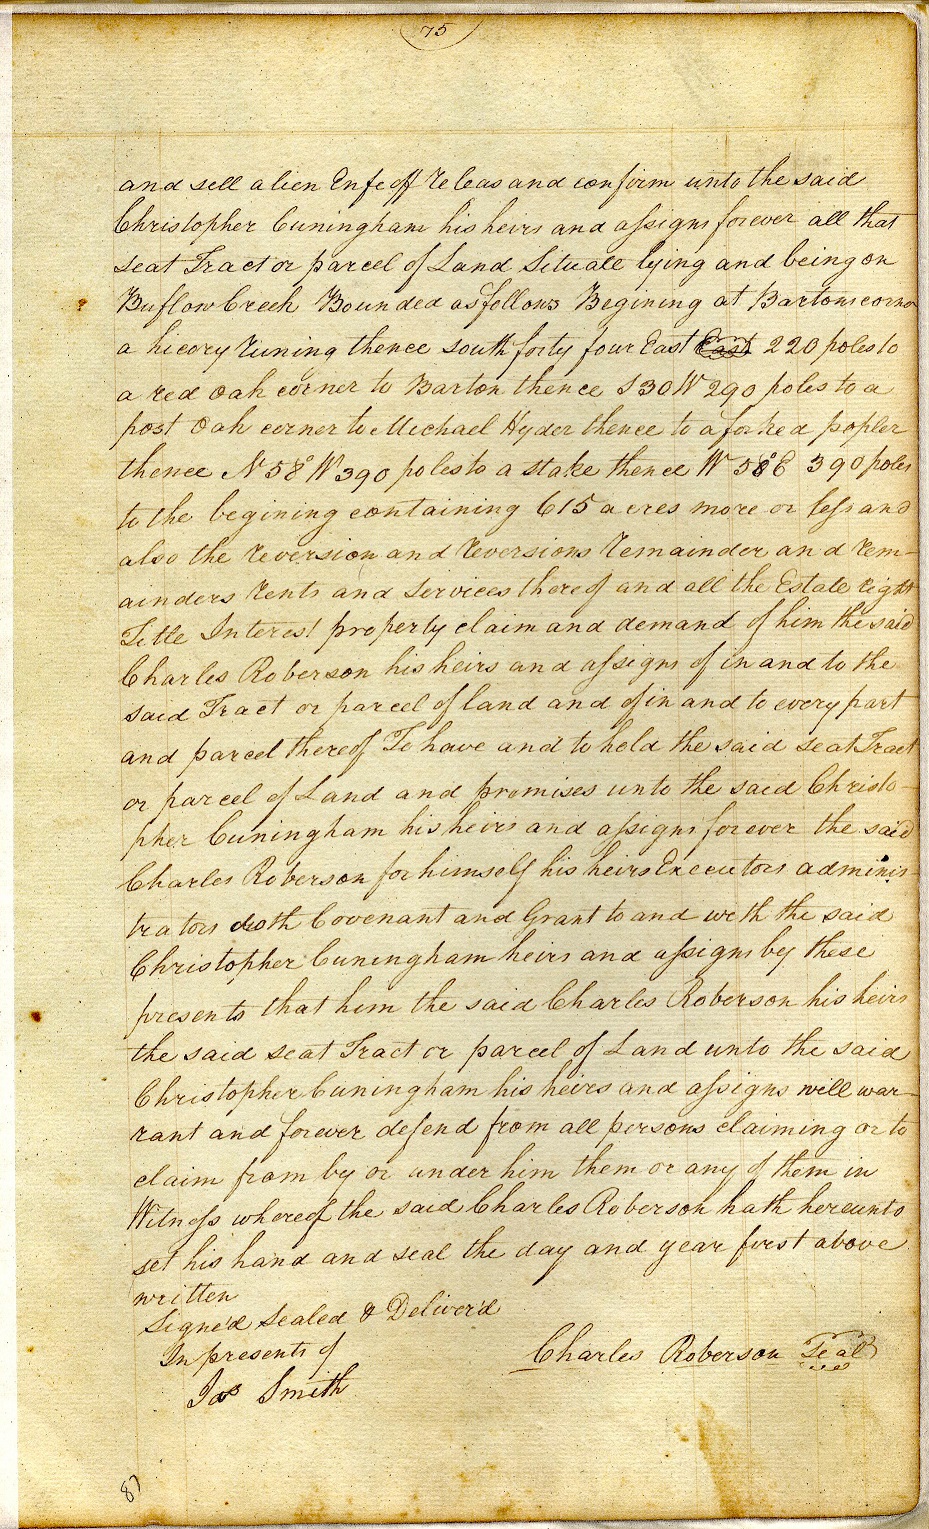 75
and sell alien Enfeoff Releas and confirm unto the said
Christopher Cuningham his heirs and assigns forever all that
seat Tract or parcel of Land Situate lying and being on
Buflow Creek Bounded as follows Begining at Bartons corno
a hicory Runing thence south forty four East East 220 poles to
a red Oak corner to Barton thence S 30 W 290 poles to a
post Oak corner to Michael Hyder thence to a forked popler
thence N 58° W 390 poles to a stake thence W 58° E 390 poles
to the begining containing 615 acres more or less and
also the Reversion and Reversions Remainder and Rem-
ainders Rents and Services thereof and all the Estate right
Title Interest property claim and demand of him the said
Charles Roberson his heirs and assigns of in and to the
said Tract or parcel of land and of in and to every part
and parcel thereof To have and to hold the said seat Tract
or parcel of Land and promises unto the said Christo-
pher Cuningham his heirs and assigns forever the said
Charles Roberson for himself his heirs Executors adminis-
trators doth Covenant and Grant to and with the said
Christopher Cuningham heirs and assigns by these
presents that him the said Charles Roberson his heirs
the said seat Tract or parcel of Land unto the said
Christopher Cuningham his heirs and assigns will war-
rant and forever defend from all persons claiming or to
claim from by or under him them or any of them in
Witness whereof the said Charles Roberson hath hereunto
set his hand and seal the day and year first above
written
Signe'd Sealed & Deliver'd
In presents of
Charles Roberson Seal
Jas Smith
87